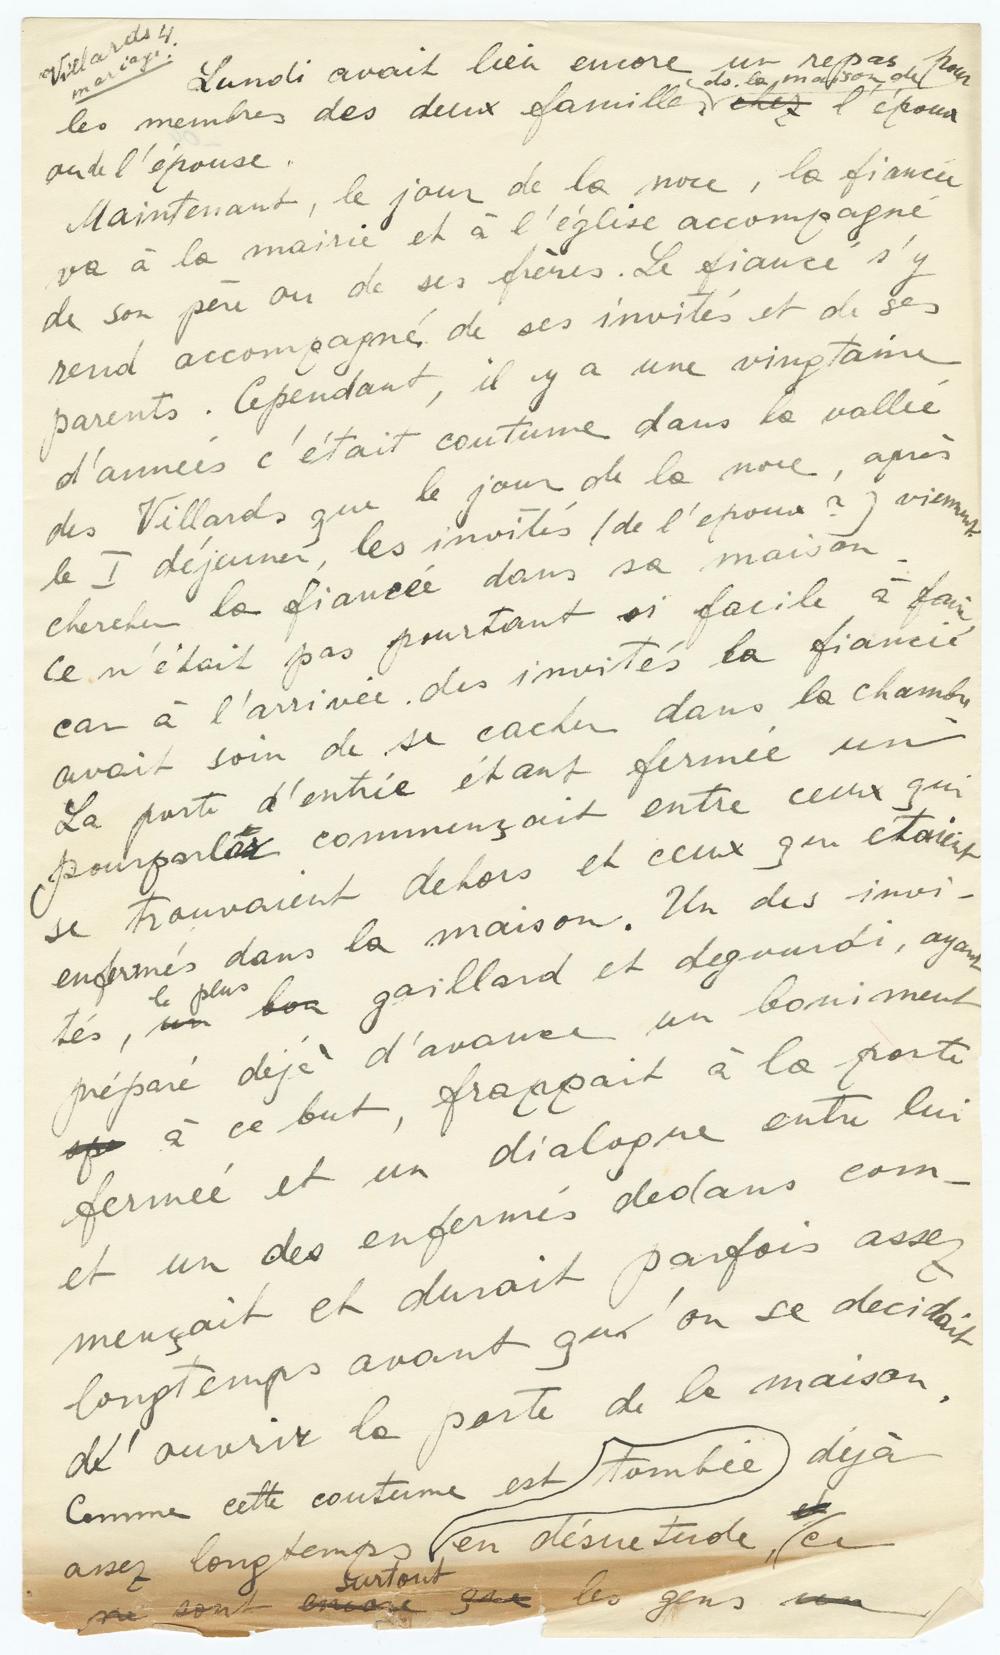 Villards 4.
mariage.
Lundi avait lieu encore un repas pour
les membres des deux famille, ds. la maison de chez l'époux
ou de l'épouse.
Maintenant, le jour de la noce, la fiancée
va à la mairie et à l'église accompagné
de son père ou de ses frères. Le fiancé s'y
rend accompagné de ses invités et de ses
parents. Cependant, il y a une vingtaine
d'années c'était coutume dans la vallée
des Villards que le jour de la noce, après
le I déjeuner, les invités (de l'epoux ?) viennent
chercher la fiancéé dans sa maison.
Ce n'était pas pourtant si facile à faire,
car à l'arrivée des invités la fiancée
avait soin de se cacher dans la chambre
La porte d'entrée étant fermée un
pourparler commençait entre ceux qui
se trouvaient dehors et ceux qui étaient
enfermés dans la maison. Un des invi-
tés, le plus un bon gaillard et degourdi, ayant
préparé déjà d'avance un boniment
à ce but, frappait à la porte
fermeé et un dialogue entre lui
et un des enfermés dedans com-
mençait et durait parfois assez
longtemps avant qu'on se decidait
d'ouvrir la porte de la maison.
Comme cette coutume est tombée déjà
assez longtemps en désuetude, et ce
ne sont surtout encore que les gens un